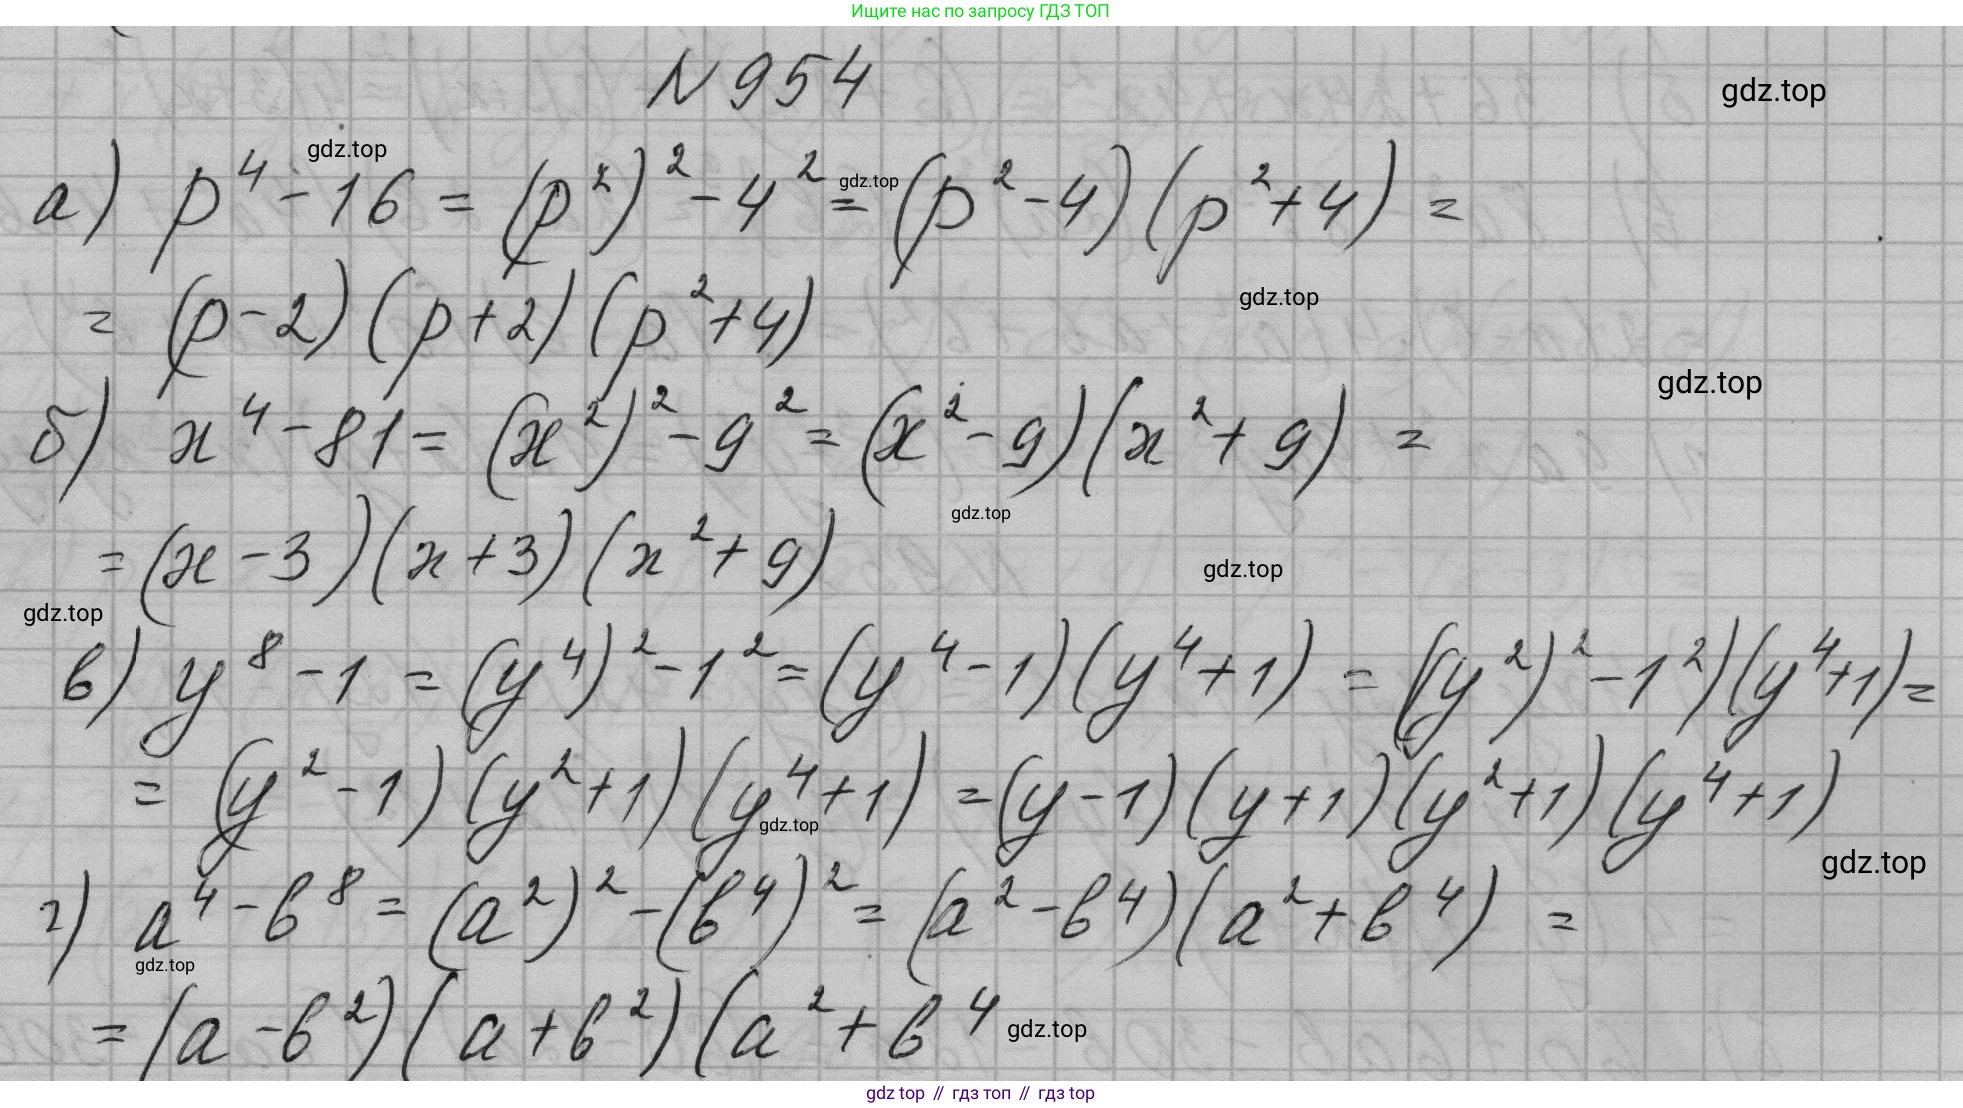 Ищите нас по запросу ГДЗ ТОП
N 954
gdz.top
gdz.top
а) p⁴ - 16 = (p²)² - 4² = (p² - 4)(p² + 4) =
gdz.top
= (p - 2)(p + 2)(p² + 4)
gdz.top
gdz.top
б) x⁴ - 81 = (x²)² - 9² = (x² - 9)(x² + 9) =
gdz.top
= (x - 3)(x + 3)(x² + 9)
gdz.top
gdz.top
в) y⁸ - 1 = (y⁴)² - 1² = (y⁴ - 1)(y⁴ + 1) = ((y²)² - 1²)(y⁴ + 1) =
= (y² - 1)(y² + 1)(y⁴ + 1) = (y - 1)(y + 1)(y² + 1)(y⁴ + 1)
gdz.top
gdz.top
г) a⁴ - b⁸ = (a²)² - (b⁴)² = (a² - b⁴)(a² + b⁴) =
gdz.top
= (a - b²)(a + b²)(a² + b⁴
gdz.top
gdz top // гдз топ // gdz top